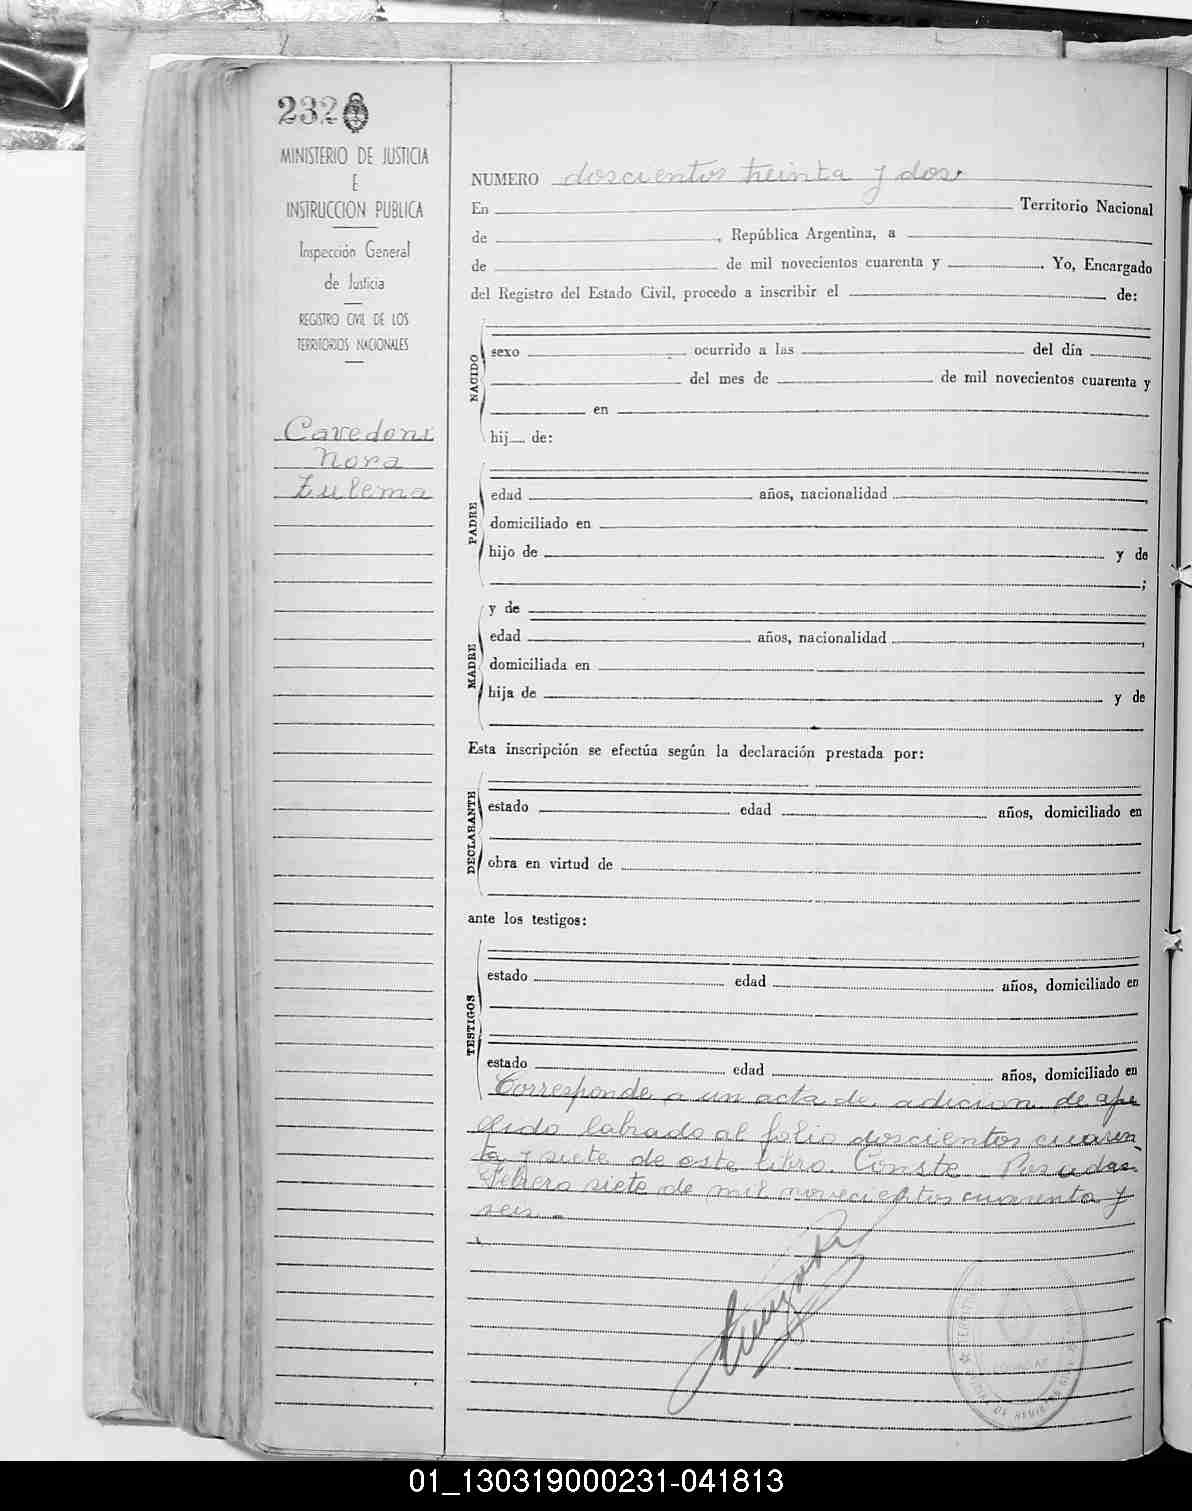 232
MINISTERIO DE JUSTICIA
E
INSTRUCCION PUBLICA
Inspección General
de Justicia
REGISTRO CIVIL DE LOS
TERRITORIOS NACIONALES
Cavedoni
Nora
Zulema
NUMERO doscientos treinta y dos.
En Territorio Nacional
de , República Argentina, a
de de mil novecientos cuarenta y . Yo, Encargado
del Registro del Estado Civil, procedo a inscribir el de:
NACIDO
sexo ocurrido a las del día
del mes de de mil novecientos cuarenta y
en
hij de:
PADRE
edad años, nacionalidad
domiciliado en
hijo de y de
;
MADRE
y de
edad años, nacionalidad ,
domiciliada en
hija de y de
Esta inscripción se efectúa según la declaración prestada por:
DECLARANTE
estado edad años, domiciliado en
obra en virtud de
ante los testigos:
TESTIGOS
estado edad años, domiciliado en
estado edad años, domiciliado en
Corresponde a un acta de adicion de ape
llido labrado al folio doscientos cuaren
ta y siete de este libro. Conste. Posadas
Febrero siete de mil novecientos cuarenta y
seis.-
01_130319000231-041813